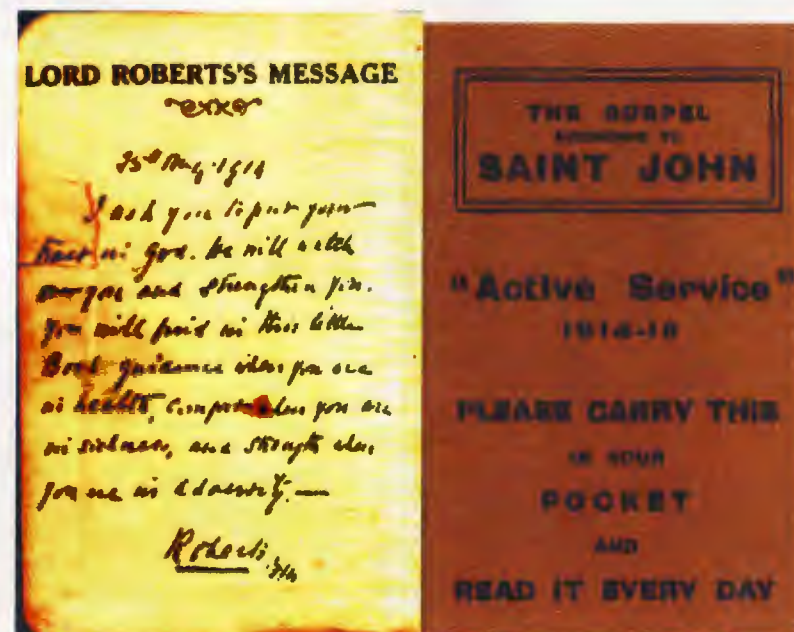 LORD ROBERTS'S MESSAGE
25th Aug. 1914
I ask you to put your
trust in God. He will watch
over you and strengthen you.
You will find in this little
Book guidance when you are
in health, comfort when you are
in sickness, and strength when
you are in adversity.—
Roberts
THE GOSPEL
ACCORDING TO
SAINT JOHN
"Active Service"
PLEASE CARRY THIS
IN YOUR
POCKET
AND
READ IT EVERY DAY